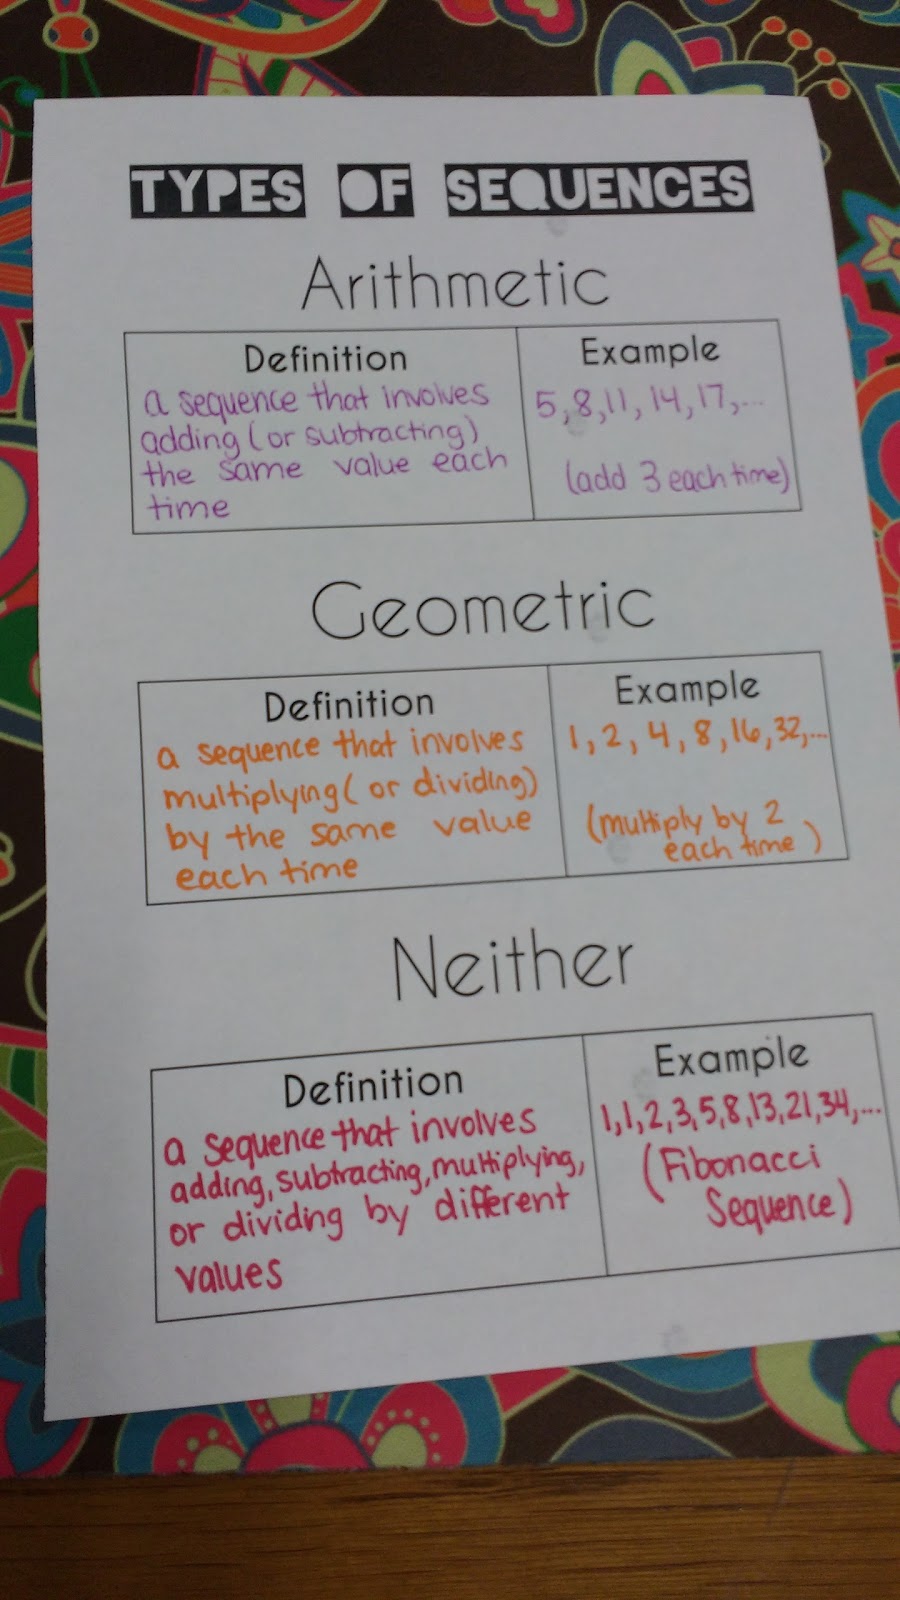 TYPES OF SEQUENCES
Arithmetic
Definition
a sequence that involves
adding (or subtracting)
the same value each
time
Example
5, 8, 11, 14, 17, ...
(add 3 each time)
Geometric
Definition
a sequence that involves
multiplying (or dividing)
by the same value
each time
Example
1, 2, 4, 8, 16, 32, ...
(multiply by 2
each time)
Neither
Definition
a sequence that involves
adding, subtracting, multiplying,
or dividing by different
values
Example
1, 1, 2, 3, 5, 8, 13, 21, 34, ...
(Fibonacci
Sequence)